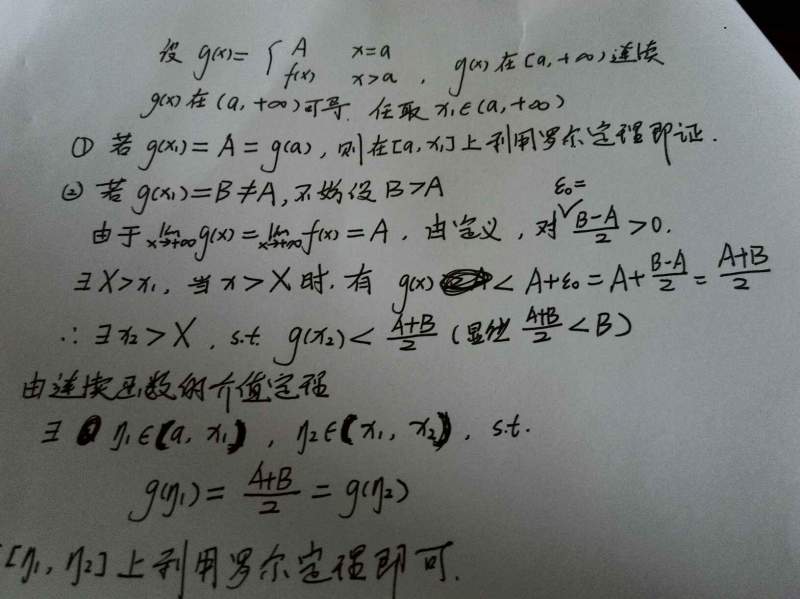 设 g(x) = { A x=a
f(x) x>a , g(x) 在 [a, +∞) 连续
g(x) 在 (a, +∞) 可导. 任取 x₁∈(a, +∞)
① 若 g(x₁) = A = g(a), 则在 [a, x₁] 上利用罗尔定理即证.
② 若 g(x₁) = B ≠ A, 不妨设 B > A
由于 lim x→+∞ g(x) = lim x→+∞ f(x) = A, 由定义, 对 ε₀= (B-A)/2 > 0.
∃ X > x₁, 当 x > X 时, 有 g(x) < A+ε₀ = A + (B-A)/2 = (A+B)/2
∴ ∃ x₂ > X, s.t. g(x₂) < (A+B)/2 (显然 (A+B)/2 < B)
由连续函数的介值定理
∃ η₁∈(a, x₁), η₂∈(x₁, x₂), s.t.
g(η₁) = (A+B)/2 = g(η₂)
[η₁, η₂] 上利用罗尔定理即可.